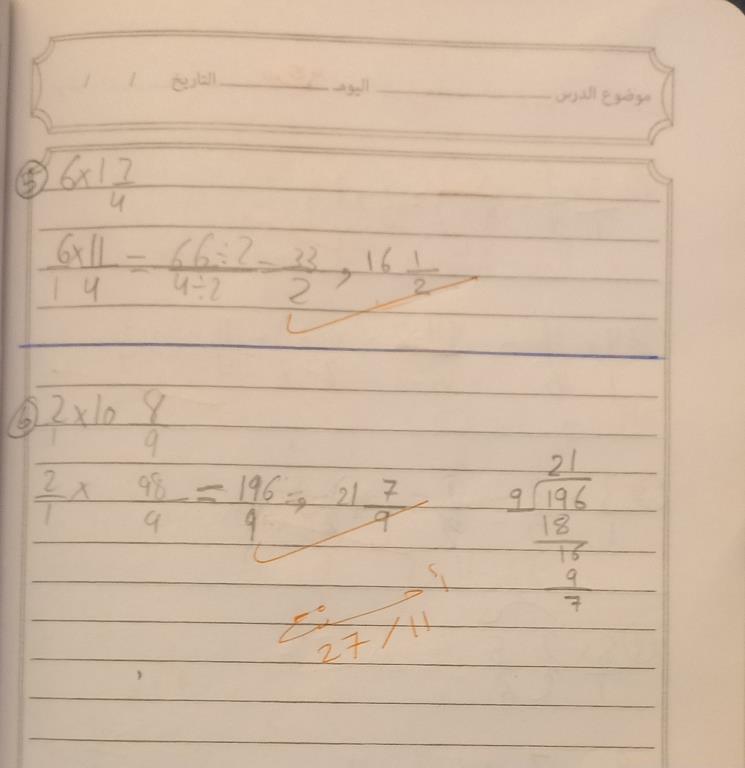 موضوع الدرس اليوم التاريخ / /
5 6 × 1 7/4
6/1 × 11/4 = 66÷2/4÷2 = 33/2 , 16 1/2
6 2/1 × 10 8/9
2/1 × 98/9 = 196/9 = , 21 7/9
21
9 196
18
16
9
7
27/11